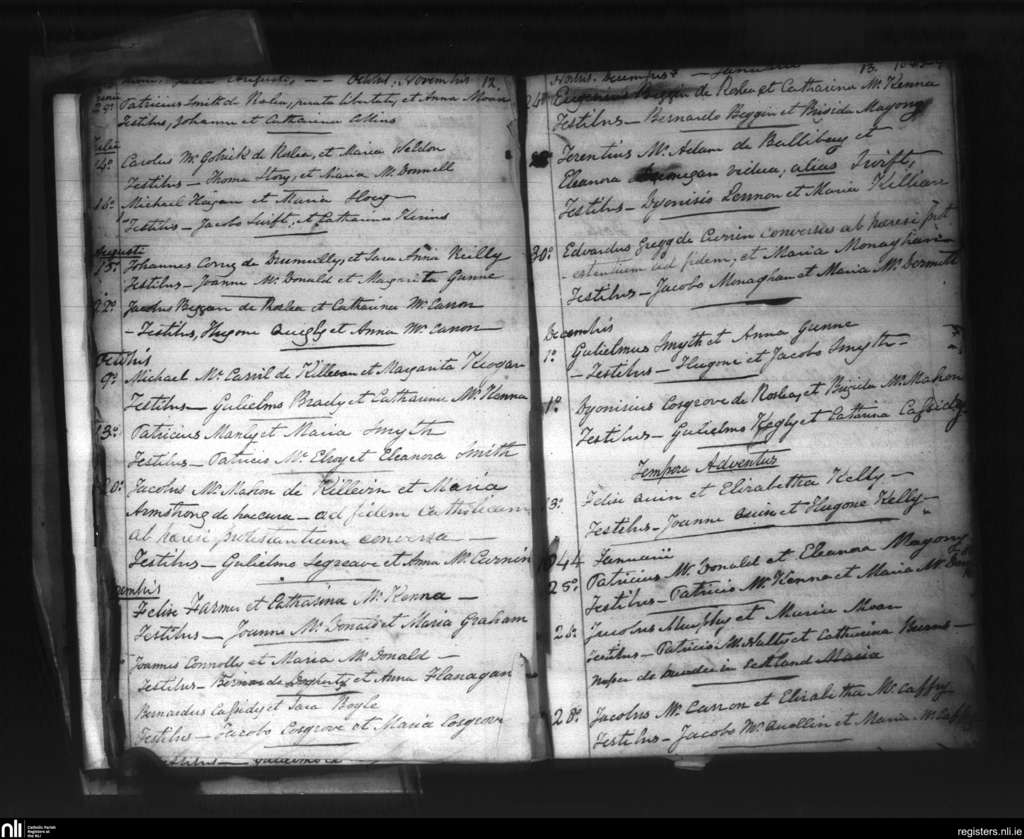 Augusti, — — Octobris, Novembris 12
29o Patricius Smith de Roslea, et Anna Moan
Testibus, Johanne et Catharina Akins
Julii
4o Carolus Mc Golrick de Roslea, et Maria Weldon
Testibus — Thoma Story, et Maria Mc Donnell
16o Michael Hagan et Maria Hoey
Testibus — Jacobo Swift, et Catharina Kerins
Augusti
15o Johannes Corry de Drumully, et Sara Anna Reilly
Testibus — Joanne Mc Donald et Margarita Gunne
22o Jacobus Beggan de Roslea et Catharina Mc Caron
— Testibus, Hugone Quigly et Anna Mc Caron
Octobris
9o Michael Mc Carvil de Killevan et Margarita Keogan
Testibus — Gulielmo Brady et Catharina Mc Kenna
13o Patricius Manly et Maria Smyth
Testibus — Patricio Mc Elroy et Eleanora Smith
20o Jacobus Mc Mahon de Killevin et Maria
Armstrong de haccura — ad fidem Catholicam
ab haresi protestantium conversa —
Testibus — Gulielmo Segreave et Anna Mc Curnin
Felix Farmer et Catharina Mc Kenna —
Testibus — Joanne Mc Donald et Maria Graham
Joannes Connolly et Maria Mc Donald —
Testibus — Bernardo Dogherty et Anna Flanagan
Bernardus Cassidy et Sara Boyle
Testibus — Jacobo Cosgrove et Maria Cosgrove
Testibus — Gulielmo
Decembris — Januarii 13
24o Eugenius Beggin de Roslea, et Catharina Mc Kenna
Testibus — Bernardo Beggin et Brigida Magony
Terentius Mc Adam de Ballibay et
Eleanora vidua, alias Swift,
Testibus — Dyonisio Lennon et Maria Killian
30o Edvardus Gregg de Currin conversus ab haresi Prot
estantium ad fidem, et Maria Monaghan
Testibus — Jacobo Monaghan et Maria Mc Dermott
Decembris
1o Gulielmus Smyth et Anna Gunne
— Testibus — Hugone et Jacobo Smyth —
1o Dyonisius Cosgrove de Roslea, et Brigida Mc Mahon
Testibus — Gulielmo et Catharina Cassidy
Tempore Adventus
3o Felix Quin et Elizabetha Kelly —
Testibus — Joanne Quin et Hugone Kelly —
1844 Januarii
25o Patricius Mc Donald et Eleanora Magony
Testibus — Patricio Mc Kenna et Maria Mc
28o Jacobus Murphy et Maria Moan
Testibus — Patricio Mc Nally et Catharina Burns —
nuper de Dundee in Scotland Maria
28o Jacobus Mc Caron et Elizabetha Mc Caffry
Testibus — Jacobo Mc Quellin et Maria Mc Caffry
nli
Catholic Parish
Registers at
the NLI
registers.nli.ie